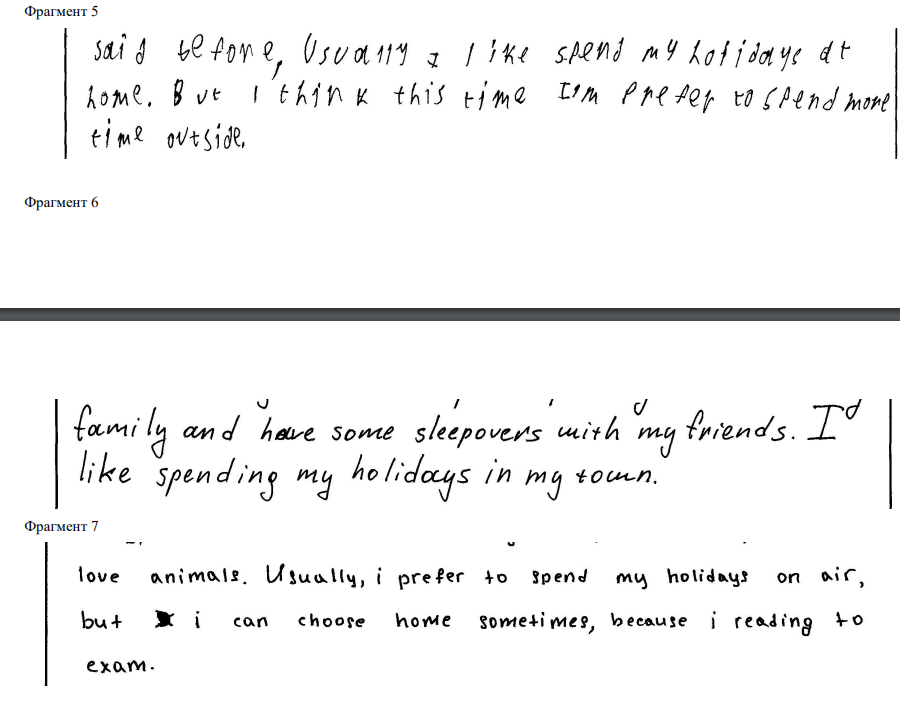 Фрагмент 5
said before, Usually I like spend my holidays at
home. But I think this time I'm prefer to spend more
time outside.
Фрагмент 6
family and have some sleepovers with my friends. I'd
like spending my holidays in my town.
Фрагмент 7
love animals. Usually, i prefer to spend my holidays on air,
but i can choose home sometimes, because i reading to
exam.